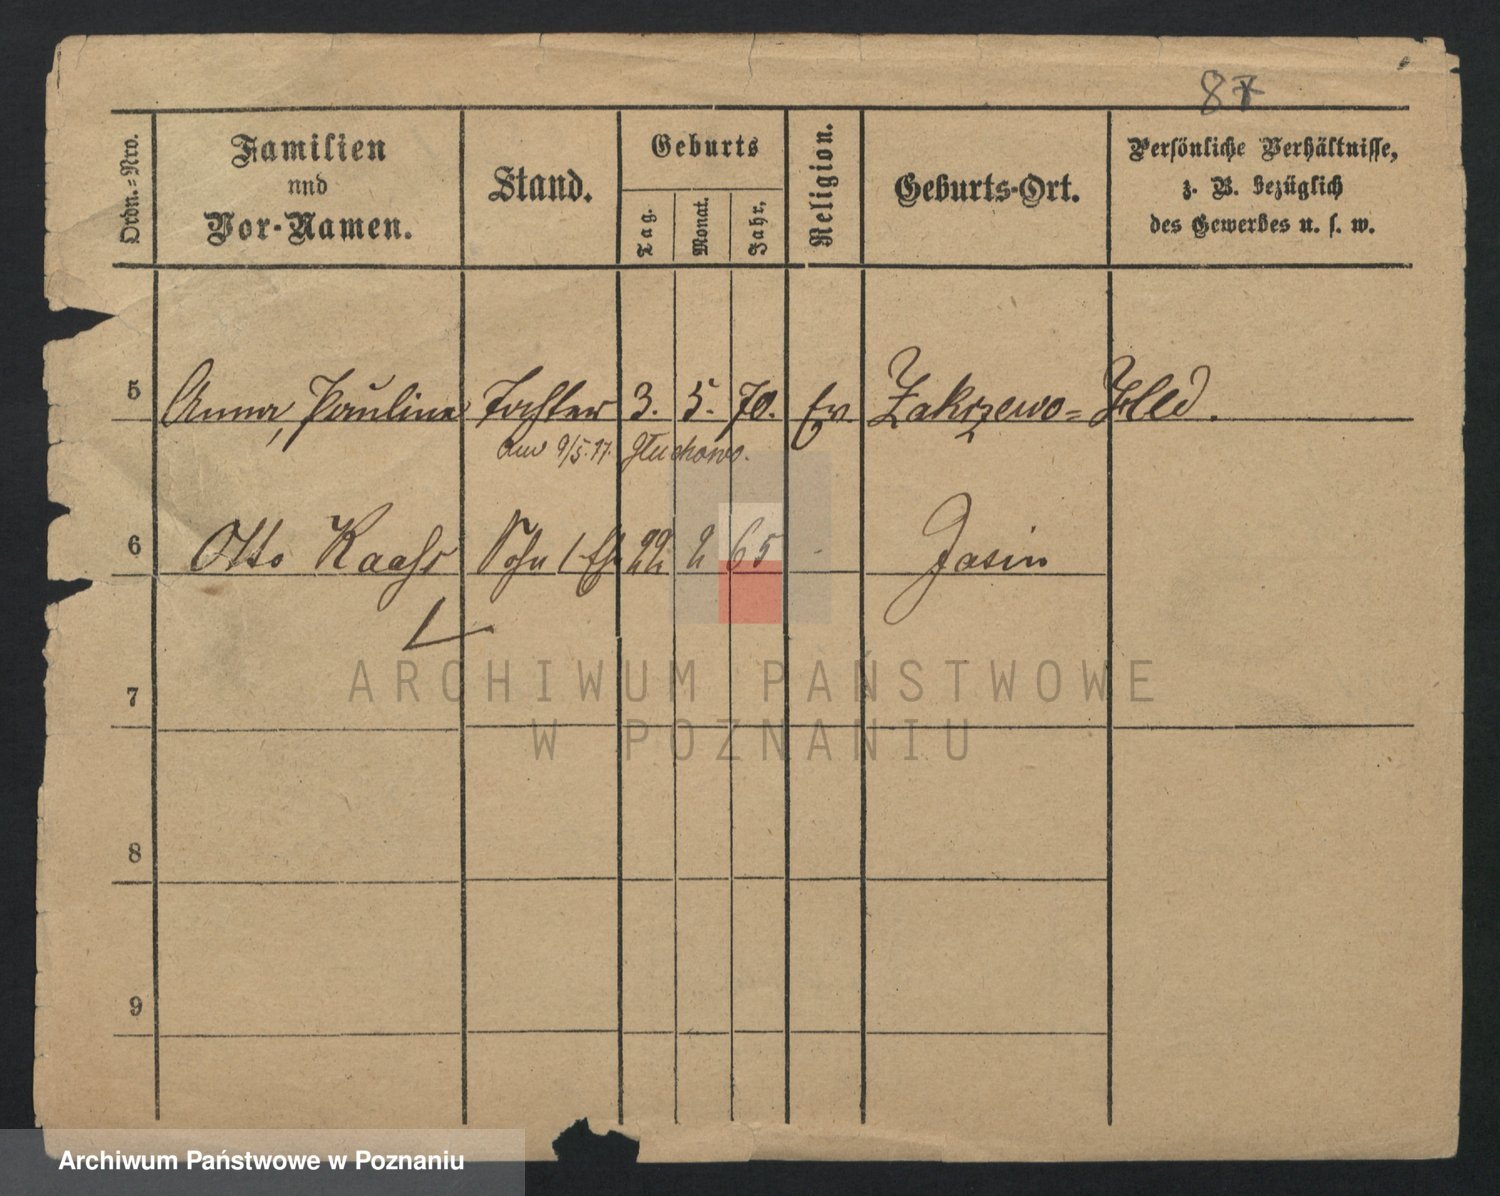 87
Ordn.-Nro.
Familien
und
Vor-Namen.
Stand.
Geburts
Tag.
Monat.
Jahr.
Religion.
Geburts-Ort.
Persönliche Verhältnisse,
z. B. bezüglich
des Gewerbes u. s. w.
5 Anna, Pauline Tochter 3. 5. 70. Ev. Zakrzewo= Hld.
9/5.77. Gluchowo.
6 Otto Raahs Sohn 1. Eh. 22 2 65 - Jasin
7
8
9
ARCHIWUM PAŃSTWOWE
W POZNANIU
Archiwum Państwowe w Poznaniu